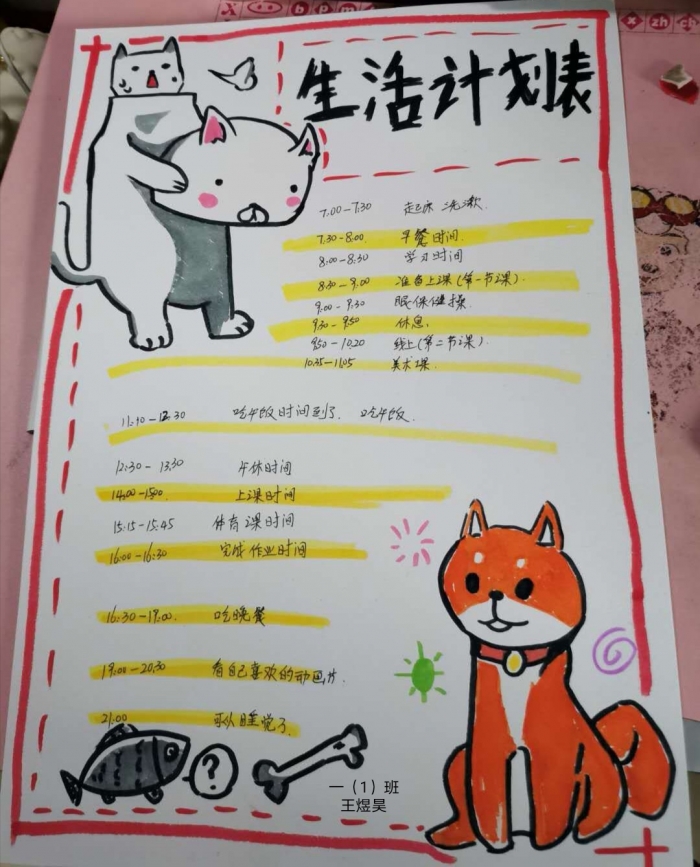 生活计划表
7:00-7:30 起床 洗漱.
7:30-8:00. 早餐时间.
8:00-8:30 学习时间
8:30-9:00 准备上课(第一节课).
9:00-9:30 眼保健操.
9:30-9:50 休息.
9:50-10:20 线上(第二节课).
10:35-11:05 美术课.
11:10-12:30 吃午饭时间到了. 吃午饭.
12:30-13:30 午休时间
14:00-15:00. 上课时间
15:15-15:45 体育课时间
16:00-16:30 完成作业时间
16:30-19:00. 吃晚餐
19:00-20:30 看自己喜欢的动画片.
21:00 可以睡觉了.
?
一（1）班
王煜昊
b p m
x zh ch